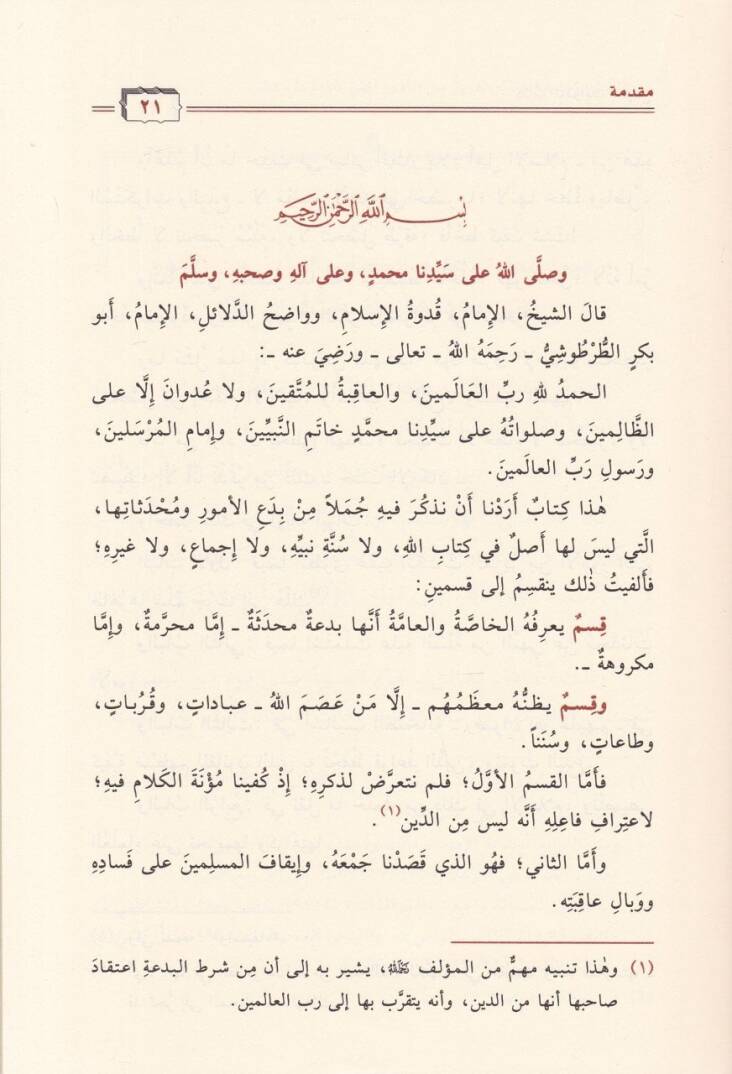 مقدمة
٢١
بِسْمِ اللَّهِ الرَّحْمَٰنِ الرَّحِيمِ
وصلَّى اللهُ على سَيِّدِنا محمدٍ، وعلى آلهِ وصحبهِ، وسلَّمَ
قالَ الشيخُ، الإمامُ، قُدوةُ الإسلامِ، وواضحُ الدَّلائلِ، الإمامُ، أَبو
بكرٍ الطُّرْطُوشِيُّ ـ رَحِمَهُ اللهُ ـ تعالى ـ ورَضِيَ عنه ـ:
الحمدُ للهِ ربِّ العَالَمينَ، والعاقِبةُ للمُتَّقينَ، ولا عُدوانَ إِلَّا على
الظَّالِمينَ، وصلواتُهُ على سيِّدِنا محمَّدٍ خاتَمِ النَّبيِّينَ، وإِمامِ المُرْسَلينَ،
ورَسولِ رَبِّ العالَمينَ.
هٰذا كِتابٌ أَرَدْنا أَنْ نذكُرَ فيهِ جُمَلاً مِنْ بِدَعِ الأمورِ ومُحْدَثاتِها،
الَّتي ليسَ لها أَصلٌ في كِتابِ اللهِ، ولا سُنَّةِ نبيِّهِ، ولا إِجماعٍ، ولا غيرِهِ؛
فأَلفيتُ ذٰلك ينقسِمُ إلى قسمينِ:
قِسمٌ يعرِفُهُ الخاصَّةُ والعامَّةُ أَنَّها بدعةٌ محدَثَةٌ ـ إِمَّا محرَّمةٌ، وإِمَّا
مكروهةٌ ـ.
وقِسمٌ يظنُّهُ معظَمُهُم ـ إِلَّا مَنْ عَصَمَ اللهُ ـ عباداتٍ، وقُرُباتٍ،
وطاعاتٍ، وسُنَناً.
فأَمَّا القسمُ الأوَّلُ؛ فلم نتعرَّضْ لذكرِهِ؛ إِذْ كُفينا مُؤْنَةَ الكَلامِ فيهِ؛
لاعتِرافِ فاعِلِهِ أَنَّه ليس مِن الدِّين(١).
وأَمَّا الثاني؛ فهُو الذي قَصَدْنا جَمْعَهُ، وإِيقافَ المسلِمينَ على فَسادِهِ
ووَبالِ عاقِبَتِه.
(١) وهٰذا تنبيه مهمٌّ من المؤلف ﷀ، يشير به إلى أن مِن شرط البدعةِ اعتقادَ
صاحبها أنها من الدين، وأنه يتقرَّب بها إلى رب العالمين.